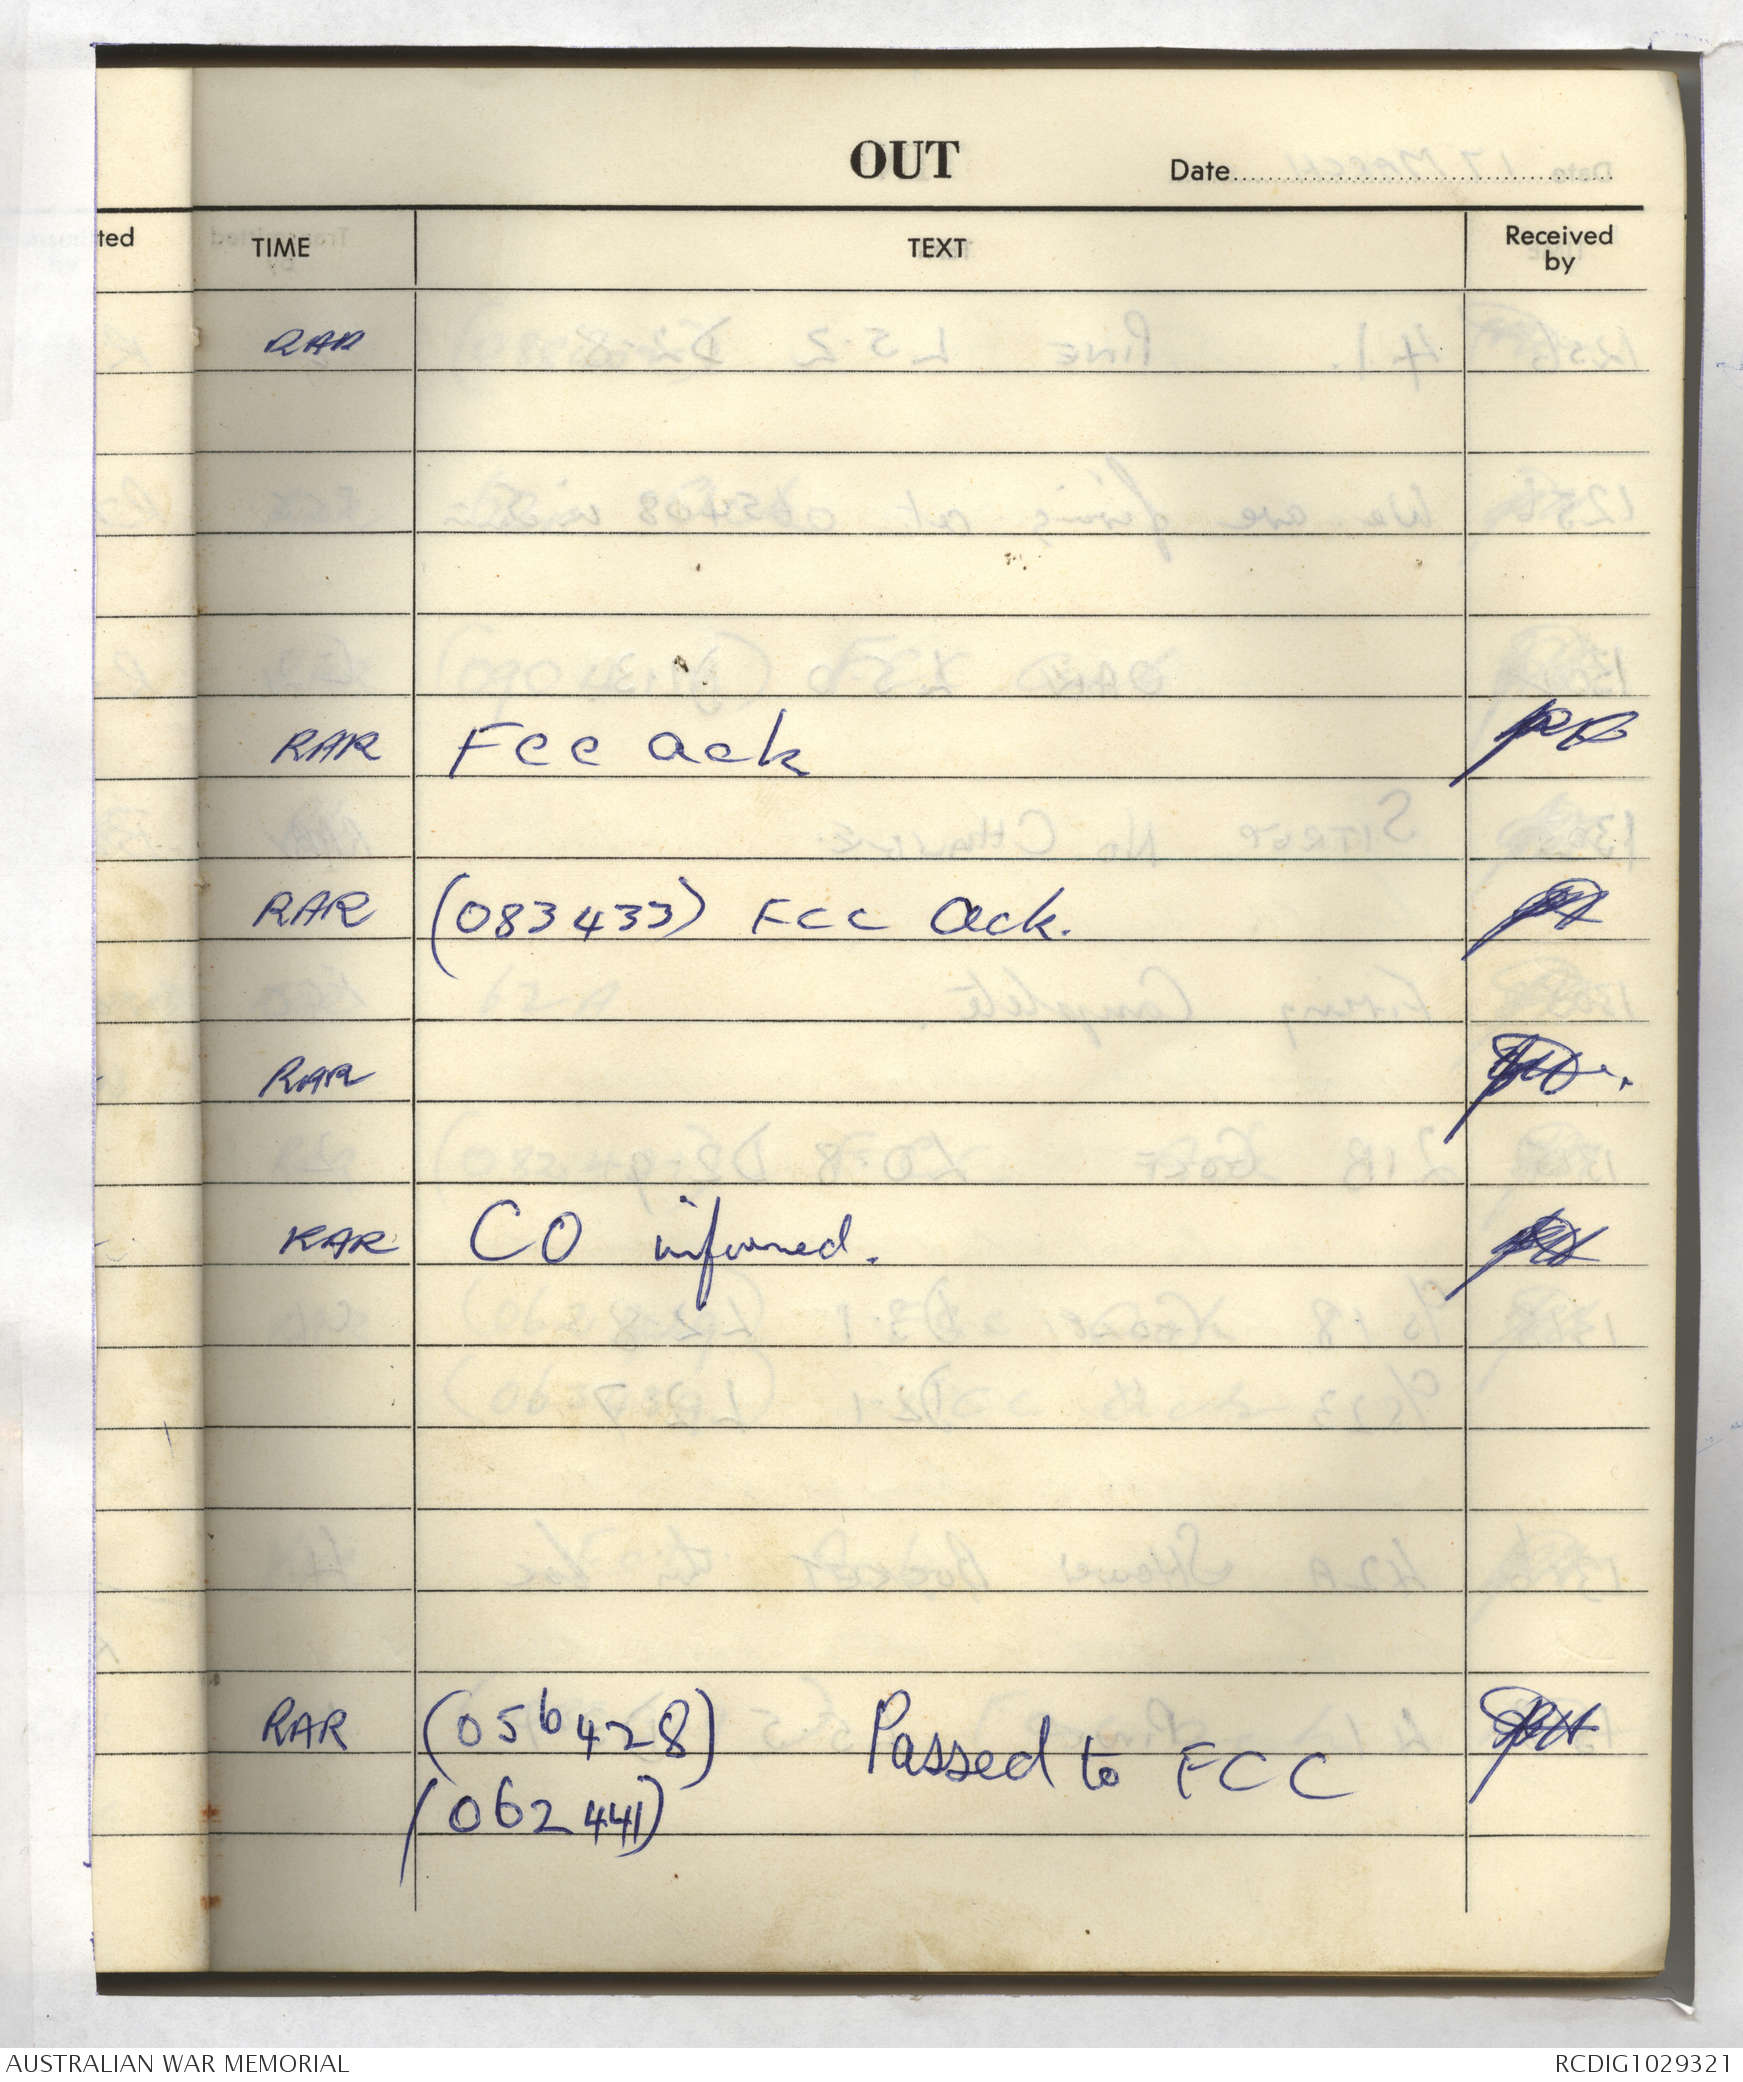 OUT
Date
ted
TIME
TEXT
Received
by
RAR
RAR FCC ack
RAR (083433) FCC Ack.
RAR
RAR CO informed.
RAR (056428) Passed to FCC
(062441)
AUSTRALIAN WAR MEMORIAL
RCDIG1029321